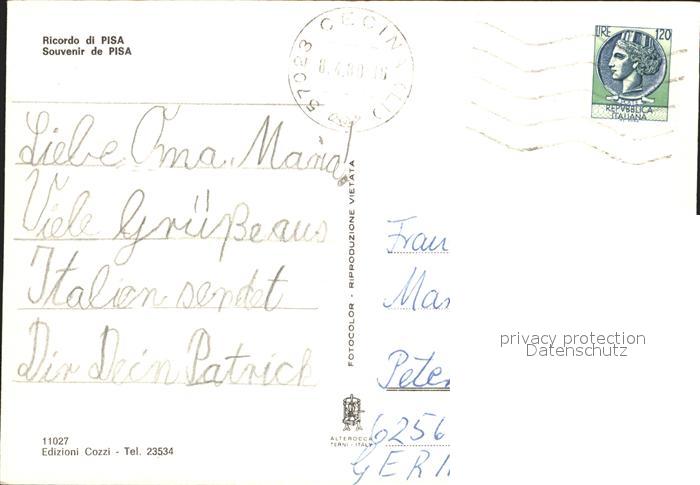 Ricordo di PISA
Souvenir de PISA
57023 CECINA (LI)
8.4.80.16
LIRE 120
REPVBBLICA
ITALIANA
Liebe Oma Maria!
Viele Grüße aus
Italien sendet
Dir Dein Patrick
FOTOCOLOR - RIPRODUZIONE VIETATA
Frau
Mar
privacy protection
Datenschutz
Peter
6256
GER
11027
Edizioni Cozzi - Tel. 23534
ALTEROCCA
TERNI - ITALY